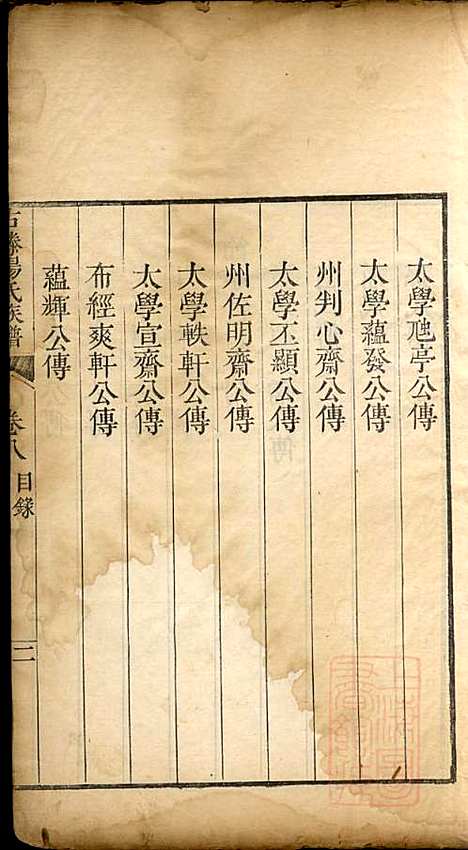 太學虺亭公傳
太學蘊發公傳
州判心齋公傳
太學丕顯公傳
州佐明齋公傳
太學軼軒公傳
太學宣齋公傳
布經爽軒公傳
蘊輝公傳
氏族譜
卷八
目錄
二